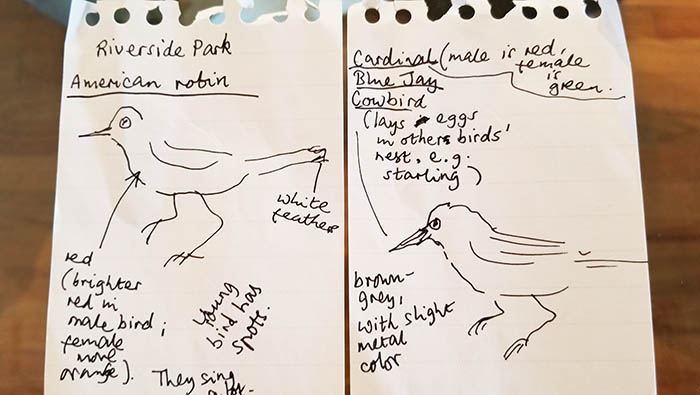 Riverside Park
American robin
white
feather
red
(brighter
red in
male bird;
female
more
orange).
young
bird has
spots.
They sing
a lot.
Cardinal (male is red,
female
is
green.
Blue Jay
Cowbird
(lays eggs
in others birds'
nest, e.g.
starling)
brown-
grey,
with slight
metal
color